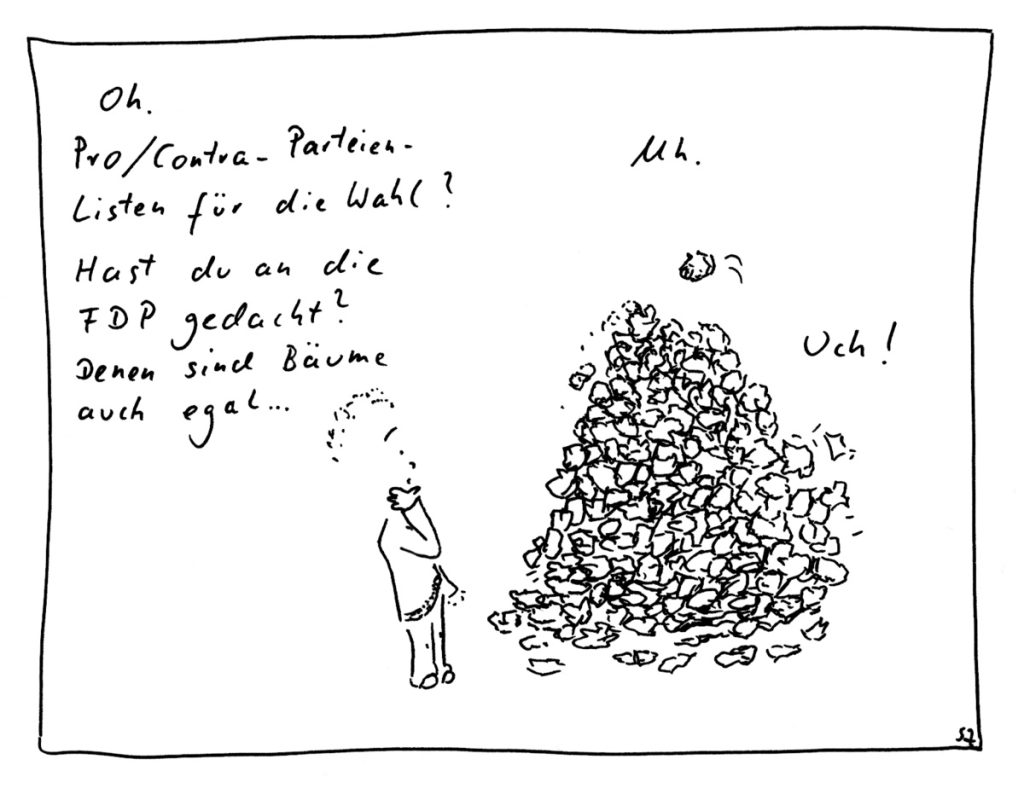 Oh.
Pro/Contra-Parteien-
Listen für die Wahl?
Hast du an die
FDP gedacht?
Denen sind Bäume
auch egal...
Uh.
Uch!
SZ